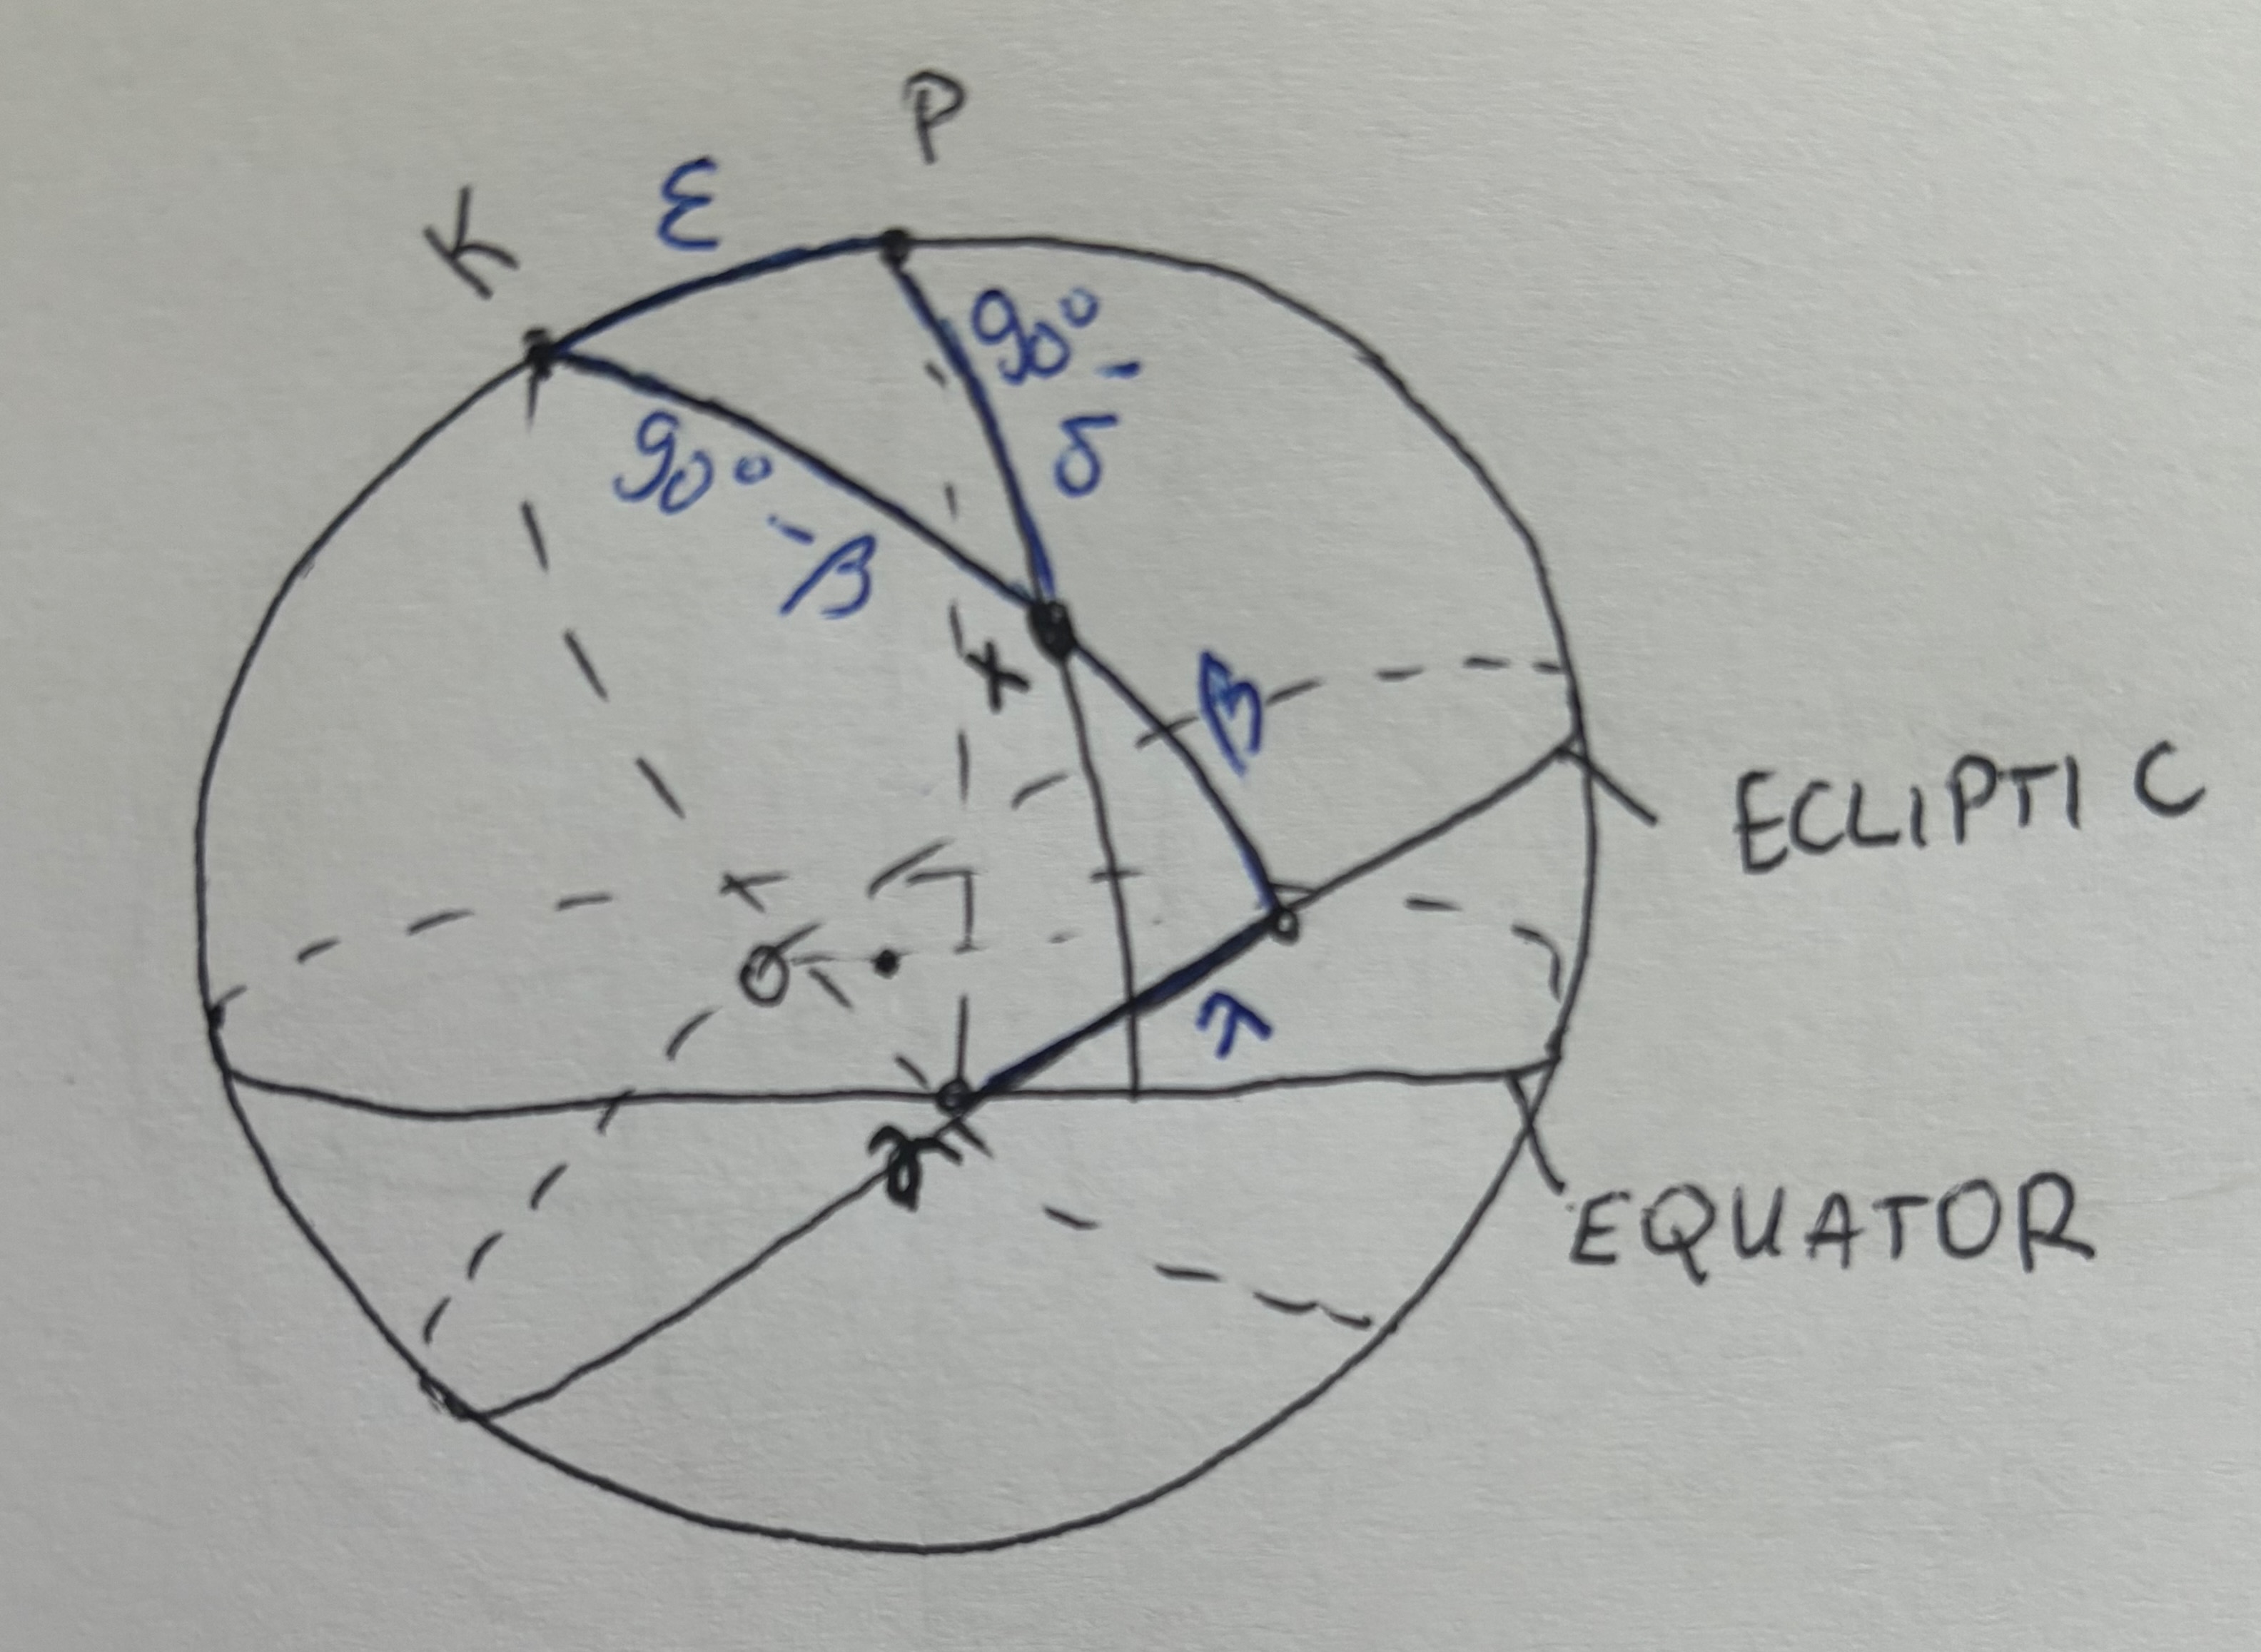 P
K
ε
90° -
δ
90°
- β
X
β
ECLIPTIC
O
λ
♈
EQUATOR